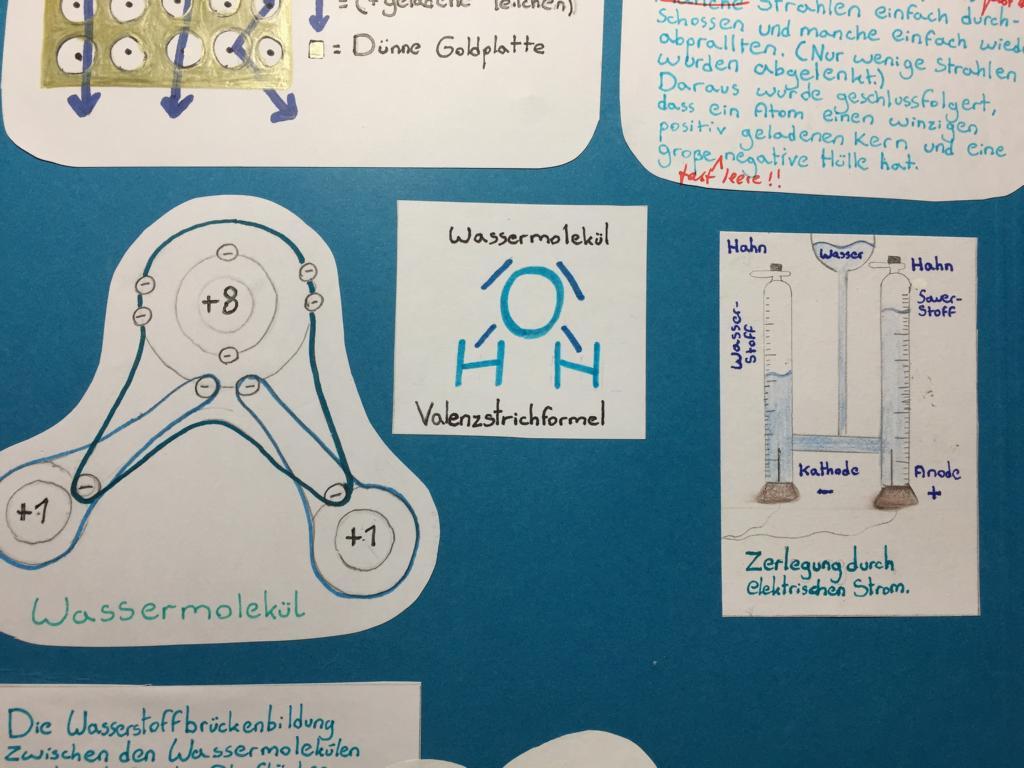 = (+geladene Teilchen)
= Dünne Goldplatte
Strahlen einfach durch-
schossen und manche einfach wied
abprallten. (Nur wenige Strahlen
wurden abgelenkt.)
Daraus wurde geschlussfolgert,
dass ein Atom einen winzigen
positiv geladenen Kern und eine
große negative Hülle hat.
fast leere!!
+8
+1
+1
Wassermolekül
Wassermolekül
O
H H
Valenzstrichformel
Hahn
Wasser
Hahn
Wasser-
stoff
Sauer-
stoff
Kathode
-
Anode
+
Zerlegung durch
elektrischen Strom.
Die Wasserstoffbrückenbildung
zwischen den Wassermolekülen